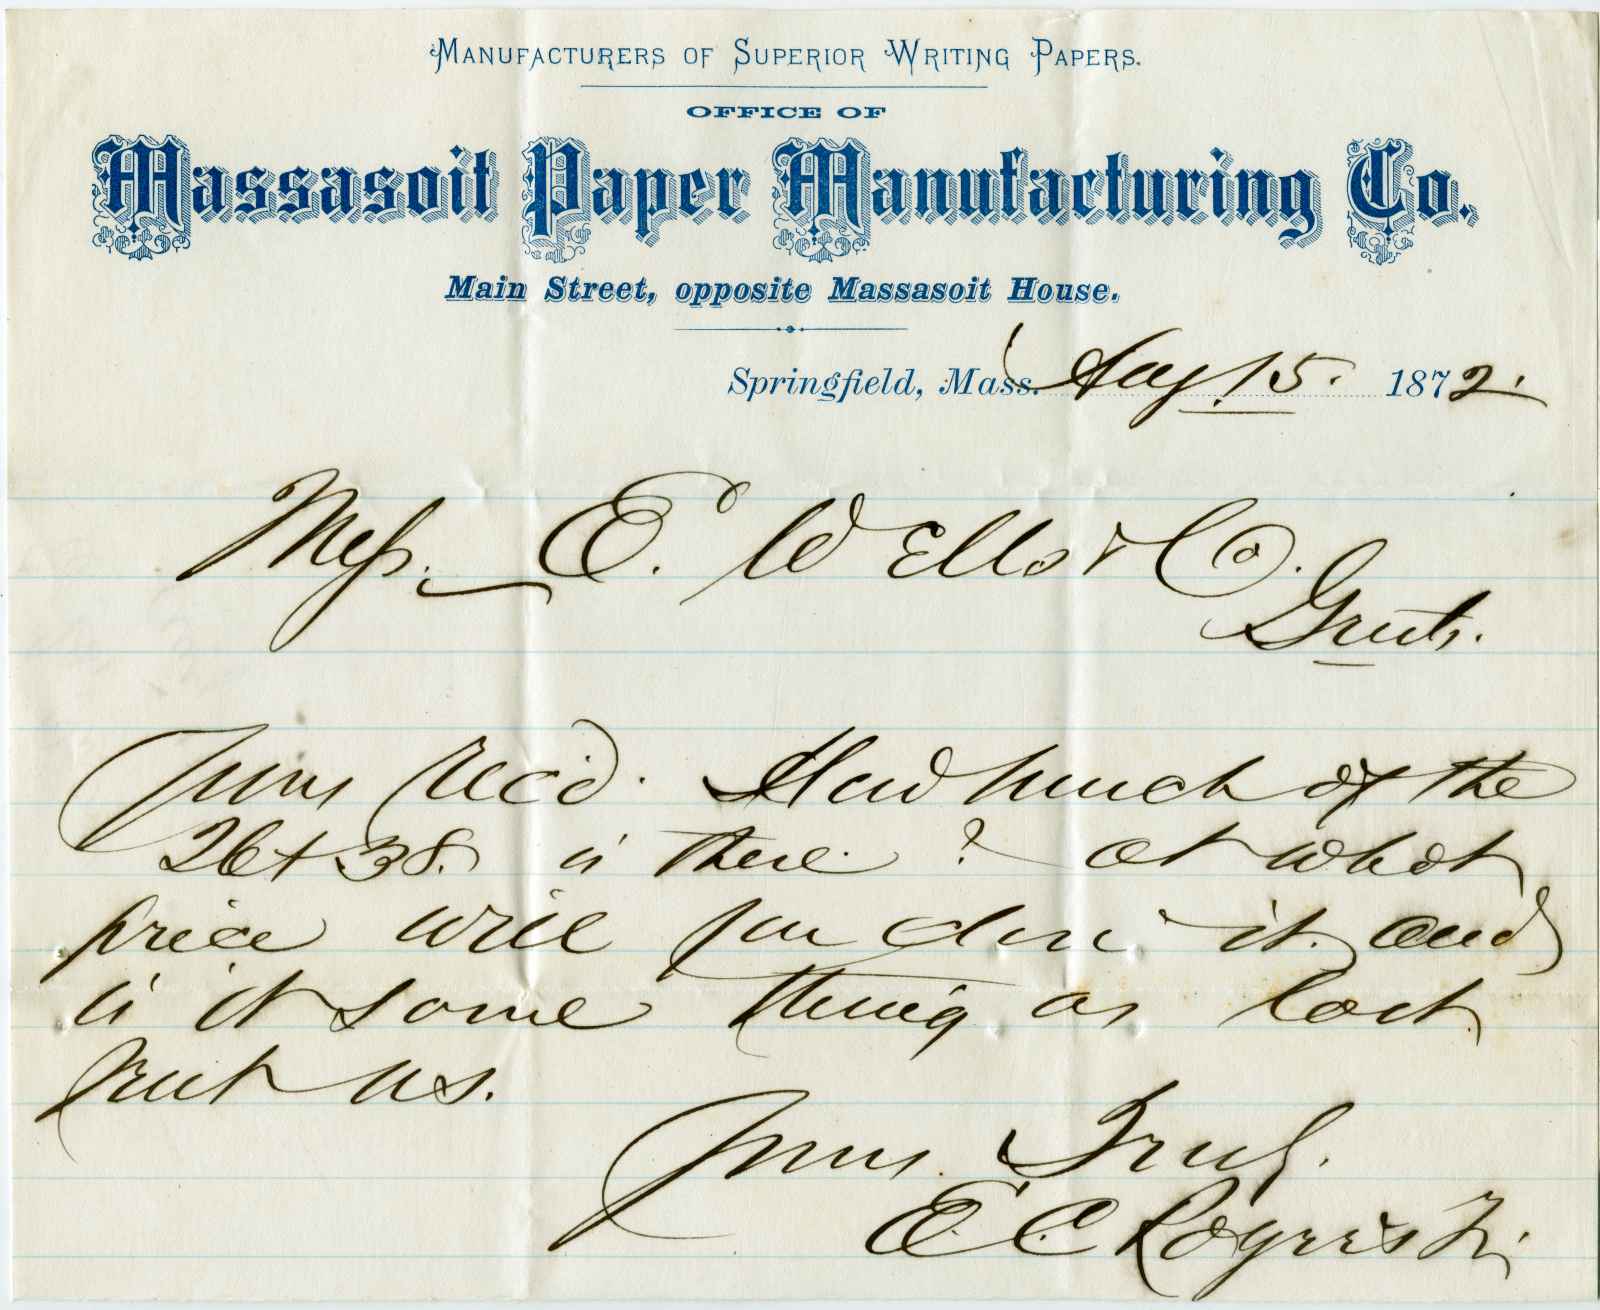 Manufacturers of Superior Writing Papers.
OFFICE OF
Massasoit Paper Manufacturing Co.
Main Street, opposite Massasoit House.
Springfield, Mass. Aug 15. 1872.
Mess. E. Wells & Co.
Gents.
Yours Rec'd. How much of the
26 + 38. is there? at what
price will you close it. and
is it some thing as last
sent us.
Yours Truly.
E. C. Rogers Tr.